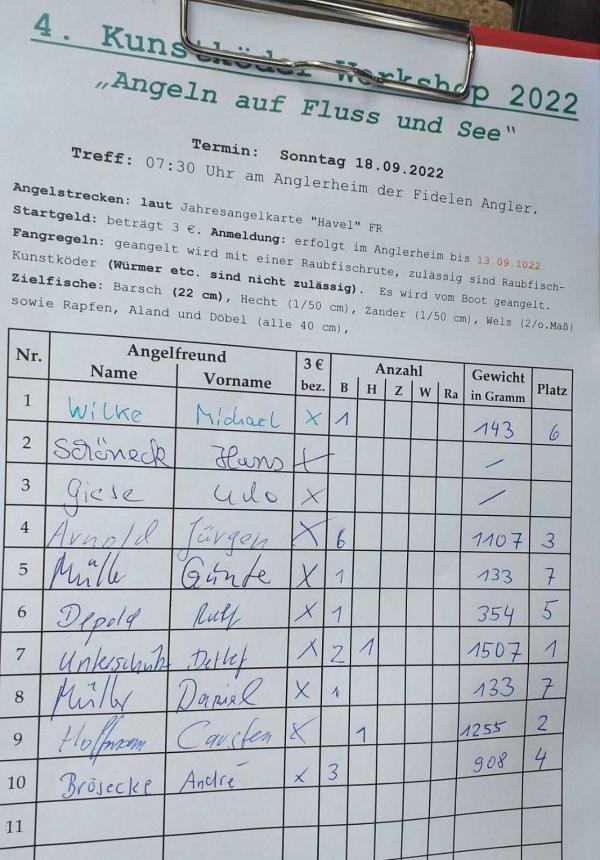 4. Kunstköder Workshop 2022
„Angeln auf Fluss und See"
Termin: Sonntag 18.09.2022
Treff: 07:30 Uhr am Anglerheim der Fidelen Angler.
Angelstrecken: laut Jahresangelkarte "Havel" FR
Startgeld: beträgt 3 €. Anmeldung: erfolgt im Anglerheim bis 13.09.1022
Fangregeln: geangelt wird mit einer Raubfischrute, zulässig sind Raubfisch-
Kunstköder (Würmer etc. sind nicht zulässig). Es wird vom Boot geangelt.
Zielfische: Barsch (22 cm), Hecht (1/50 cm), Zander (1/50 cm), Wels (2/o.Maß)
sowie Rapfen, Aland und Döbel (alle 40 cm),
Nr. Angelfreund 3 € Anzahl Gewicht Platz
Name Vorname bez. B H Z W Ra in Gramm
1 Wilke Michael X 1 143 6
2 Schöneck Hans X /
3 Giese Udo X /
4 Arnold Jürgen X 6 1107 3
5 Müller Günte X 1 133 7
6 Depold Ralf X 1 354 5
7 Unterschütz Detlef X 2 1 1507 1
8 Müller Daniel X 1 133 7
9 Hoffmann Carsten X 1 1255 2
10 Brösecke André X 3 908 4
11